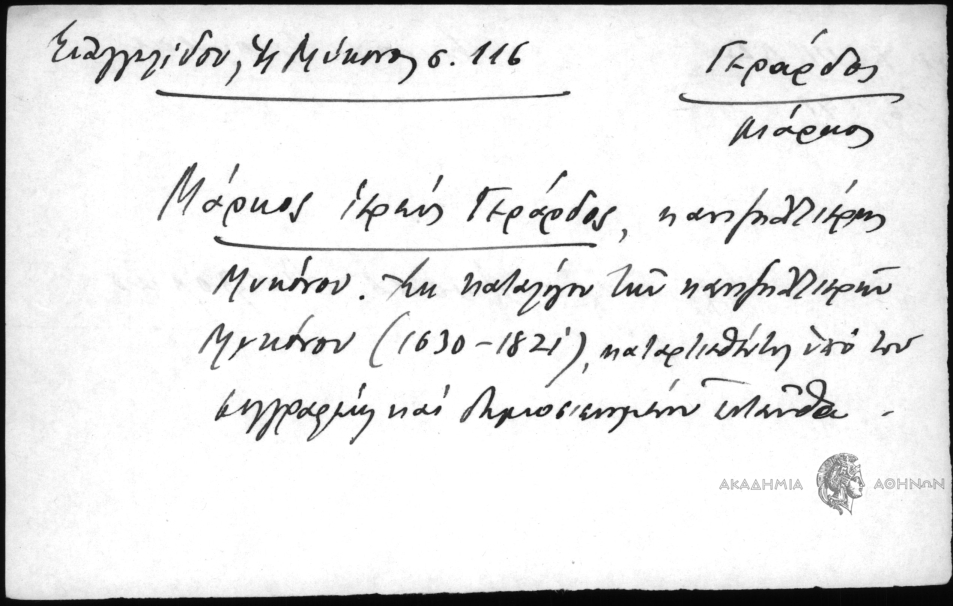 Ευαγγελίδου, Ἡ Μύκονος σ. 116
Γεράρδος
Μάρκος
Μάρκος ἱερεύς Γεράρδος, καντζηλιέρης
Μυκόνου. Ἐκ καταλόγου τῶν καντζηλιερῶν
Μυκόνου (1630-1821), καταρτισθέντος ὑπό του
συγγραφέως καί δημοσιευομένου ἐνταῦθα.
ΑΚΑΔΗΜΙΑ ΑΘΗΝΩΝ